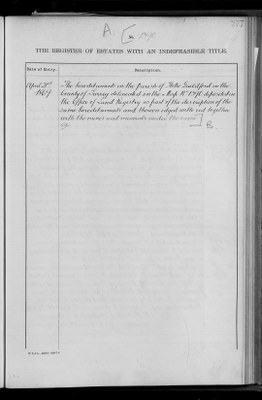 A.
377
THE REGISTER OF ESTATES WITH AN INDEFEASIBLE TITLE.
Date of Entry.
Description.
April
1867
The hereditaments in the Parish of Stoke Guildford in the
County of Surrey delineated on the Map No 1290 deposited in
the Office of Land Registry as part of the description of the
same hereditaments and thereon edged with red together
with the mines and minerals under the same
B.